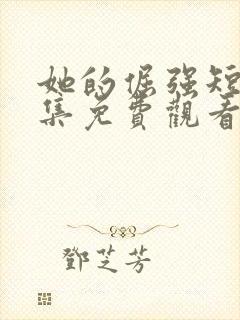 她的倔强短
集免費觀看
鄧芝芳